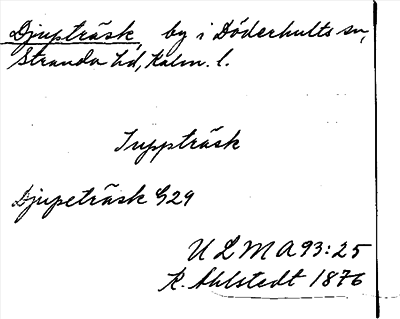 Djupträsk, by i Döderhults sn,
Stranda hd, Kalm. l.
Juppträsk
Djupeträsk G29
ULMA 93:25
R. Ahlstedt 1876